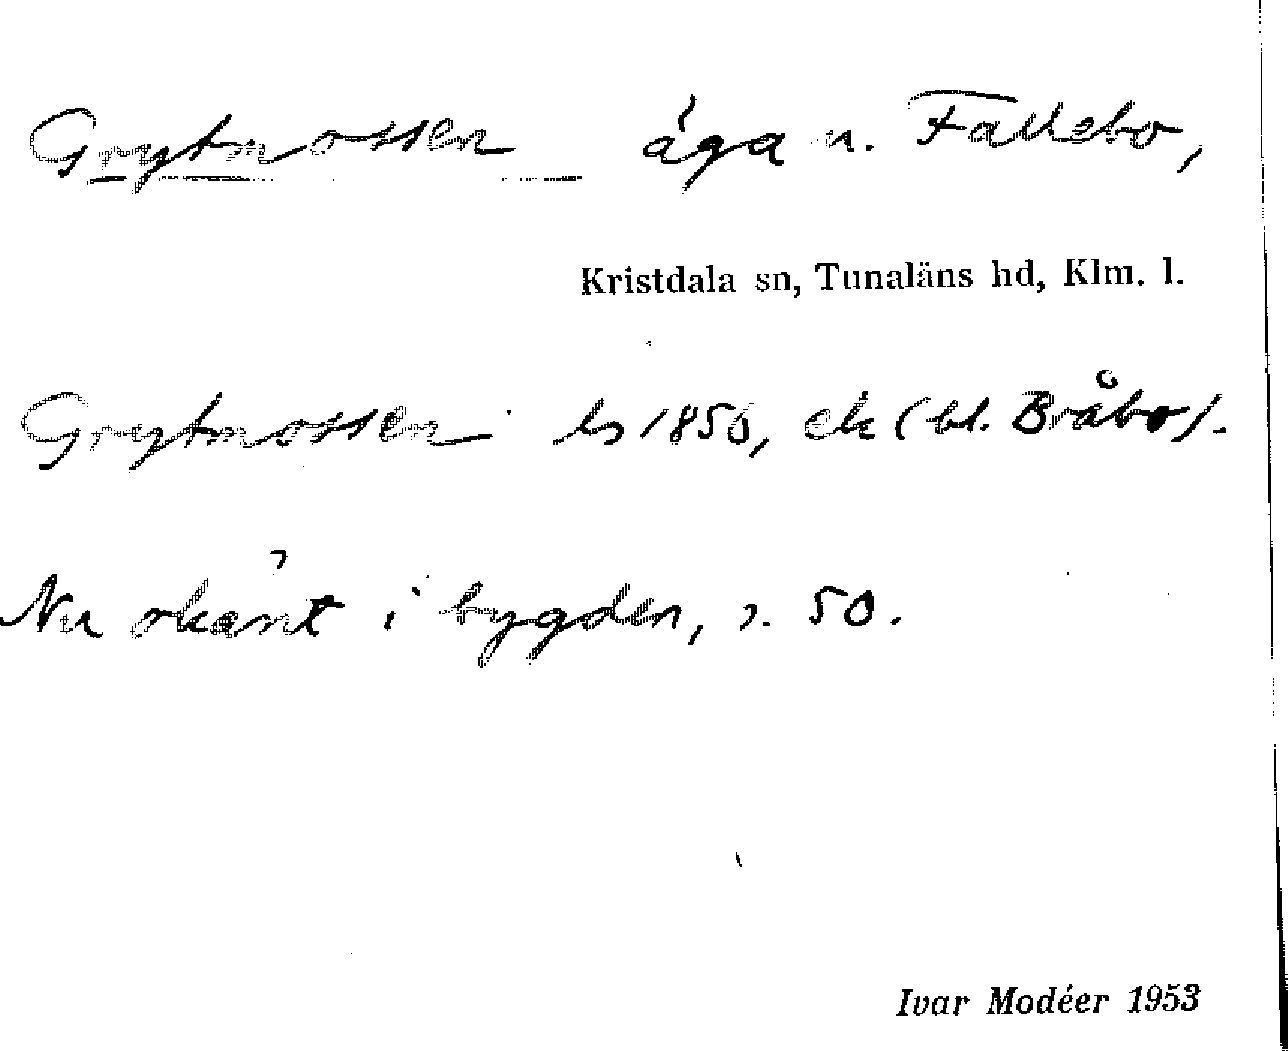 Grytmossen äga u. Fallebo,
Kristdala sn, Tunaläns hd, Klm. l.
Grytmossen ls 1850, ek (bl. Bråbo).
Nu okänt i bygden, s. 50.
Ivar Modéer 1953